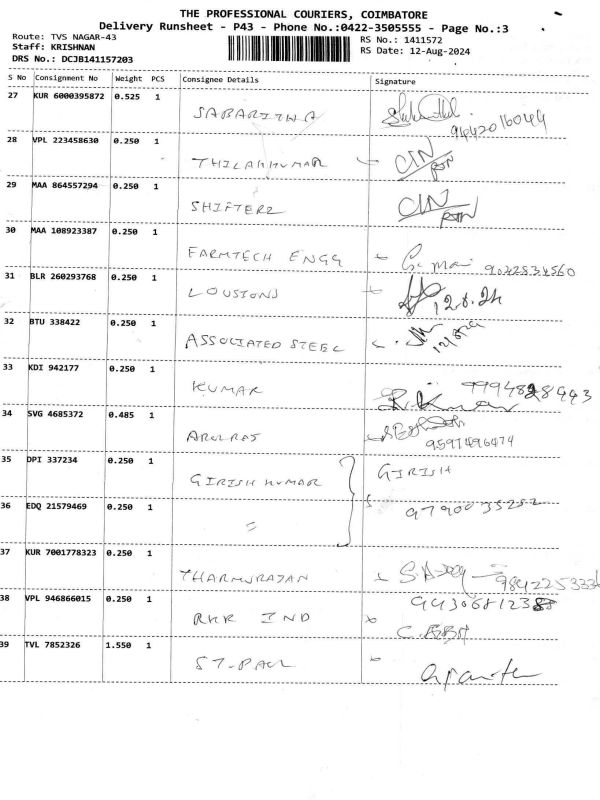 THE PROFESSIONAL COURIERS, COIMBATORE
Delivery Runsheet - P43 - Phone No.:0422-3505555 - Page No.:3
Route: TVS NAGAR-43
Staff: KRISHNAN
DRS No.: DCJB141157203
RS No.: 1411572
RS Date: 12-Aug-2024
S No Consignment No Weight PCS Consignee Details Signature
27 KUR 6000395872 0.525 1
SABARITHA
28 VPL 223458630 0.250 1
THILAKKUMAR CIN
29 MAA 864557294 0.250 1
SHIFTERZ CIN
30 MAA 108923387 0.250 1
FARMTECH ENGG
31 BLR 260293768 0.250 1
LOUSIONS 12.8.24
32 BTU 338422 0.250 1
ASSOCIATED STEEL 12/8/24
33 KDI 942177 0.250 1
KUMAR
34 SVG 4685372 0.485 1
ARULRAJ
9597496474
35 DPI 337234 0.250 1
GIRISH KUMAR GIRISH
36 EDQ 21579469 0.250 1
= 9790035252
37 KUR 7001778323 0.250 1
THARMURAJAN
38 VPL 946866015 0.250 1
RKR IND
39 TVL 7852326 1.550 1
ST-PAUL